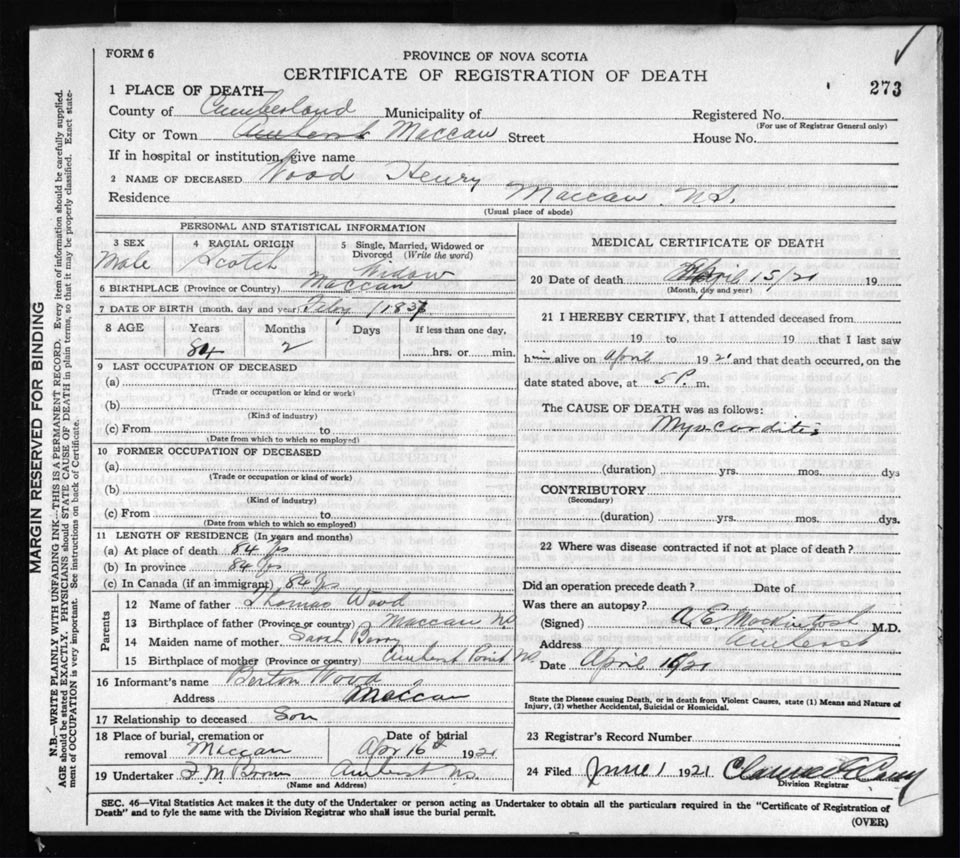 FORM 6
PROVINCE OF NOVA SCOTIA
CERTIFICATE OF REGISTRATION OF DEATH
273
1 PLACE OF DEATH
County of Cumberland Municipality of Registered No.
(For use of Registrar General only)
City or Town Amherst Maccan Street House No.
If in hospital or institution, give name
2 NAME OF DECEASED Wood Henry
Residence Maccan N.S.
(Usual place of abode)
PERSONAL AND STATISTICAL INFORMATION
3 SEX 4 RACIAL ORIGIN 5 Single, Married, Widowed or Divorced (Write the word)
Male Scotch Widow
6 BIRTHPLACE (Province or Country) Maccan
7 DATE OF BIRTH (month, day and year) Feby 1837
8 AGE Years Months Days If less than one day,
84 2 hrs. or min.
9 LAST OCCUPATION OF DECEASED
(a)
(Trade or occupation or kind or work)
(b)
(Kind of industry)
(c) From to
(Date from which to which so employed)
10 FORMER OCCUPATION OF DECEASED
(a)
(Trade or occupation or kind of work)
(b)
(Kind of industry)
(c) From to
(Date from which to which so employed)
11 LENGTH OF RESIDENCE (In years and months)
(a) At place of death 84 yrs
(b) In province 84 yrs
(c) In Canada (if an immigrant) 84 yrs
Parents
12 Name of father Thomas Wood
13 Birthplace of father (Province or country) Maccan NS
14 Maiden name of mother Sarah Berry
15 Birthplace of mother (Province or country) Amherst Point NS
16 Informant's name Berton Wood
Address Maccan
17 Relationship to deceased Son
18 Place of burial, cremation or removal Maccan Date of burial Apr 16th 1921
19 Undertaker F. M. Brown Amherst NS.
(Name and Address)
MEDICAL CERTIFICATE OF DEATH
20 Date of death April 15/21 19
(Month, day and year)
21 I HEREBY CERTIFY, that I attended deceased from
19 to 19 that I last saw
him alive on April 1921 and that death occurred, on the
date stated above, at 5 P. m.
The CAUSE OF DEATH was as follows:
Myocarditis
(duration) yrs. mos. dys
CONTRIBUTORY
(Secondary)
(duration) yrs. mos. dys.
22 Where was disease contracted if not at place of death?
Did an operation precede death? Date of
Was there an autopsy?
(Signed) A. E. Mackintosh M.D.
Address Amherst
Date April 16/21
State the Disease causing Death, or in death from Violent Causes, state (1) Means and Nature of
Injury, (2) whether Accidental, Suicidal or Homicidal.
23 Registrar's Record Number
24 Filed June 1 1921
Division Registrar
SEC. 46—Vital Statistics Act makes it the duty of the Undertaker or person acting as Undertaker to obtain all the particulars required in the "Certificate of Registration of
Death" and to fyle the same with the Division Registrar who shall issue the burial permit.
(OVER)
MARGIN RESERVED FOR BINDING
N.B.—WRITE PLAINLY WITH UNFADING INK—THIS IS A PERMANENT RECORD. Every item of information should be carefully supplied.
AGE should be stated EXACTLY. PHYSICIANS should STATE CAUSE OF DEATH in plain terms, so that it may be properly classified. Exact state-
ment of OCCUPATION is very important. See instructions on back of Certificate.